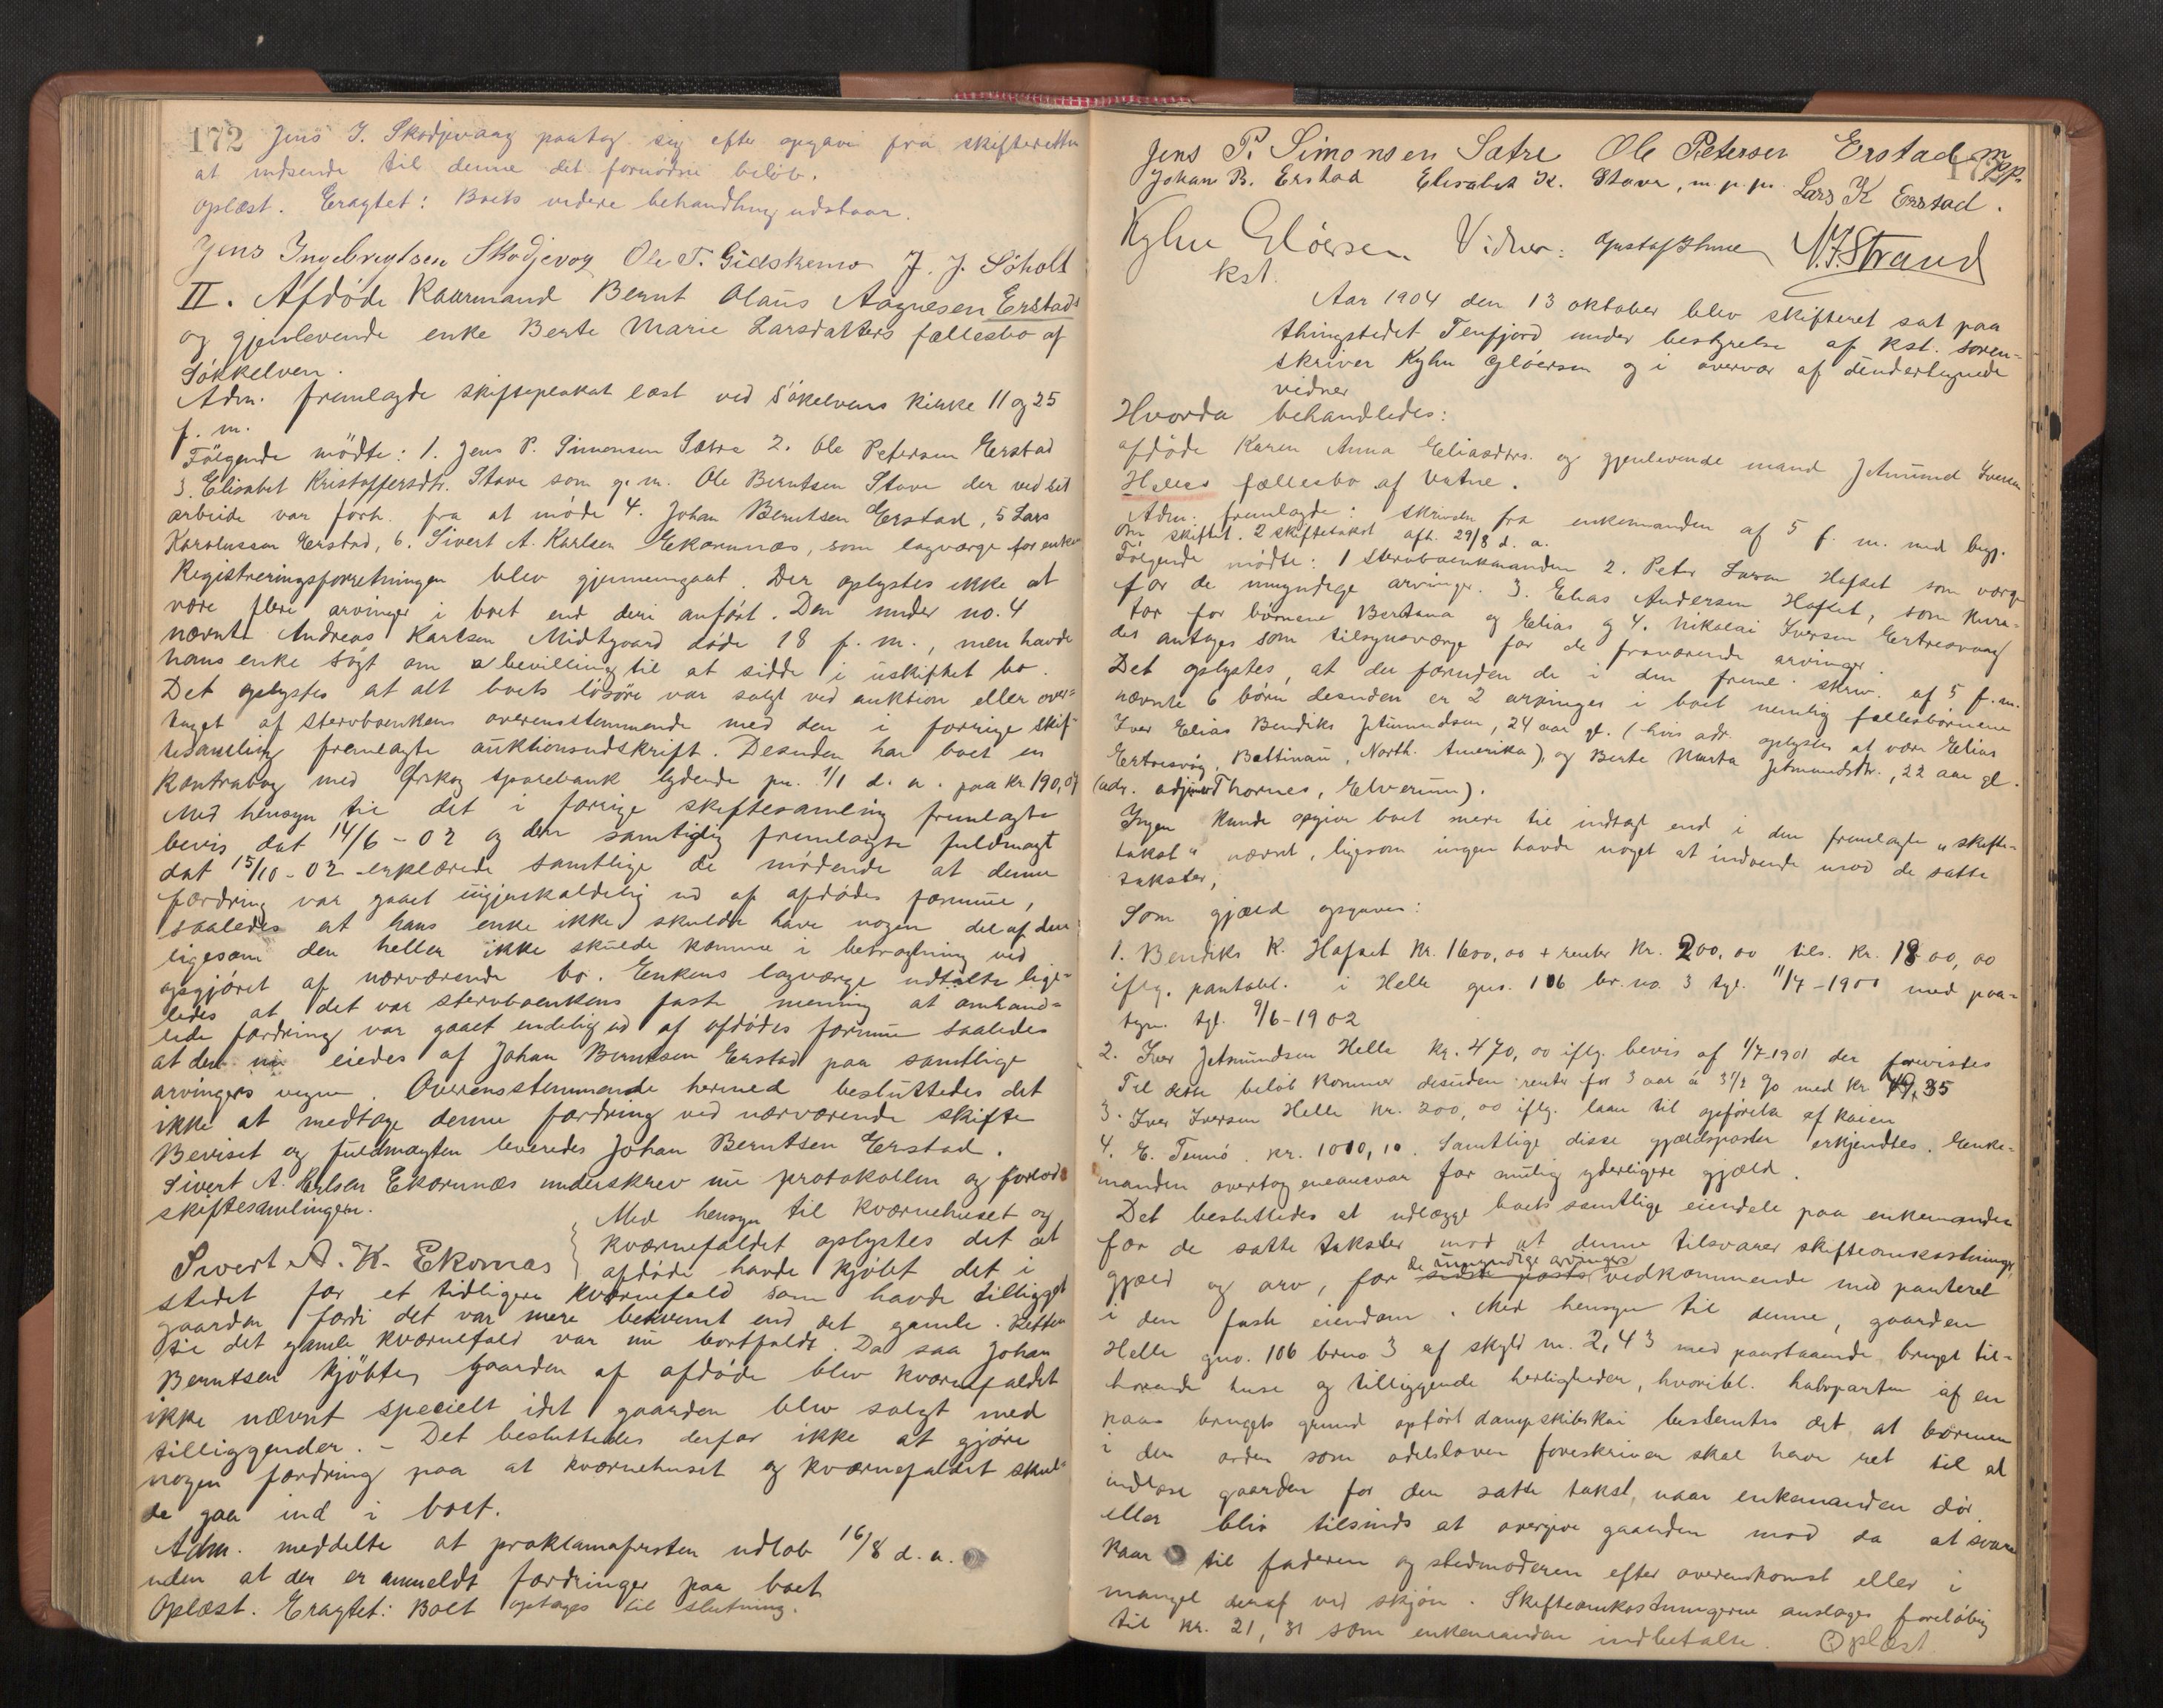 172 Jens I. Skodjevaag paatog sig efter opgave fra skifteretten
at indsende til denne det fornødne beløb.
Oplæst. Eragtet: Boets videre behandling udstaar.
Jens Ingebregtsen Skodjevog Ole T. Gidskemo J. J. Søholt
II. Afdøde Kaarmand Bernt Olaus Aagnesen Erstads
og gjenlevende enke Berte Marie Larsdatters fællesbo af
Søkkelven.
Adm. fremlagde skifteplakat læst ved Søkelvens kirke 11 og 25
f. m.
Følgende mødte: 1. Jens P. Simonsen Sætre 2. Ole Petersen Erstad
3. Elisabet Kristoffersdtr. Stave som g. m. Ole Berntsen Stave der ved sit
arbeide var forh. fra at møde 4. Johan Berntsen Erstad, 5 Lars
Karolussen Erstad, 6. Sivert A. Karlsen Ekornnæs, som lagværge for enken
Registreringsforretningen blev gjennemgaat. Der oplystes ikke at
være flere arvinger i boet end deri anført. Den under no. 4
nævnte Andreas Karlsen Midtgaard døde 18 f. m., men havde
hans enke søgt om bevilling til at sidde i uskiftet bo.
Det oplystes at alt boets løsøre var solgt ved auktion eller over-
taget af stervboenken overensstemmende med den i forrige skif-
tesamling fremlagte auktionsudskrift. Desuden har boet en
kontrabog med Ørskog sparebank lydende pr. 1/1 d. a. paa kr. 190,07
Med hensyn til det i forrige skiftesamling fremlagte
bevis dat 14/6 - 02 og den samtidig fremlagte fuldmagt
dat 15/10 - 02 erklærede samtlige de mødende at denne
fordring var gaaet uigjenkaldelig ud af afdødes formue,
saaledes at hans enke ikke skulde have nogen del af den
ligesom den heller ikke skulde komme i betragtning ved
opgjøret af nærværende bo. Enkens lagværge udtalte lige-
ledes at det var stervboenkens faste mening at omhand-
lede fordring var gaaet endelig ud af afdødes formue saaledes
at den nu eiedes af Johan Berntsen Erstad paa samtlige
arvingers vegne. Overensstemmende hermed besluttedes det
ikke at medtage denne fordring ved nærværende skifte
Beviset og fuldmagten leveredes Johan Berntsen Erstad.
Sivert A. Karlsen Ekornnæs underskrev nu protokollen og forlod
skiftesamlingen.
Sivert A. K. Ekornæs
Med hensyn til kværnehuset og
kværnefaldet oplystes det at
afdøde havde kjøbt det i
stedet for et tidligere kværnefald som havde tilligget
gaarden fordi det var mere bekvemt end det gamle. Retten
til det gamle kværnefald var nu bortfaldt. Da saa Johan
Berntsen kjøbte gaarden af afdøde blev kværnefaldet
ikke nævnt specielt idet gaarden blev solgt med
tilliggender. - Det besluttedes derfor ikke at gjøre
nogen fordring paa at kværnehuset og kværnefaldet skul-
de gaa ind i boet.
Adm. meddelte at proklamafristen udløb 16/8 d. a.
uden at der er anmeldt fordringer paa boet
Oplæst. Eragtet: Boet optages til slutning.
Jens P. Simonsen Sætre Ole Petersen Erstad m p p.
Johan B. Erstad Elisabet K. Stave, m. p. p. Lars K Erstad.
Kyhn Gløersen Vidner: Gustaf N. F. Strand
kst.
Aar 1904 den 13 oktober blev skifteret sat paa
thingstedet Tenfjord under bestyrelse af kst. soren-
skriver Kyhn Gløersen og i overvær af de undertegnede
vidner
Hvorda behandledes:
afdøde Karen Anna Eliasdtrs. og gjenlevende mand Jetmund Iversen
Helles fællesbo af Vatne.
Adm. fremlagde: skrivelse fra enkemanden af 5 f. m. med begj.
om skiftet. 2 skiftetakst afh. 29/8 d. a.
Følgende mødte: 1 stervboenkemanden 2. Peter Larsen Hafset som værge
for de umyndige arvinger. 3. Elias Andersen Hafset, som kura-
tor for børnene Bertina og Elias og 4. Nikolai Iversen Ertresvaag
der antages som tilsynsværge for de fraværende arvinger.
Det oplystes, at der foruden de i den freml. skriv. af 5 f. m.
nævnte 6 børn desuden er 2 arvinger i boet nemlig fællesbørnene
Iver Elias Bendiks Jetmundsen, 24 aar gl. (hvis adr. oplystes at være Elias
Ertresvøg, Bottinau, North. Amerika), og Berte Marta Jetmundsdtr., 22 aar gl.
(adr. adjunkt Thornes, Elverum).
Ingen kunde opgive boet mere til indtægt end i den fremlagte "skifte-
takst" nævnt, ligesom ingen havde noget at indvende mod de satte
takster,
Som gjæld opgaves:
1. Bendiks K. Hafset Kr. 1600,00 + renter Kr. 200,00 tils. kr. 1800,00
iflg. pantobl. i Helle gno. 106 br. no. 3 tgl. 11/4 - 1900 med paa-
tegn. tgl. 9/6 - 1902
2. Iver Jetmundsen Helle Kr. 470,00 iflg. bevis af 1/7 1901 der forevistes
Til dette beløb kommer desuden renter for 3 aar à 3 1/2 % med kr. 49,35
3. Iver Iversen Helle kr. 200,00 iflg. laan til opførelse af kaien
4. E. Tennø kr. 1010,10. Samtlige disse gjældsposter erkjendtes. Enke-
manden overtog eneansvar for mulig yderligere gjæld.
Det besluttedes at udlægge boets samtlige eiendele paa enkemanden
for de satte takster mod at denne tilsvarer skifteomkostninger,
de umyndige arvinger
gjæld og arv, for sidste posts vedkommende med panteret
i den faste eiendom. Med hensyn til denne, gaarden
Helle gno. 106 brno 3 af skyld m. 2,43 med paastaaende, bruget til-
hørende huse og tilliggende herligheder, hvoribl. halvparten af en
paa brugets grund opført dampskibskai bestemtes det, at børnene
i den orden som odelsloven foreskriver skal have ret til at
indløse gaarden for den satte takst, naar enkemanden dør
eller bliv tilsinds at overgive gaarden mod da at svare
kaar til faderen og stedmoderen efter overenskomst eller i
mangel deraf ved skjøn. Skifteomkostningerne anslages foreløbig
til kr. 21,31 som enkemanden indbetalte. Oplæst